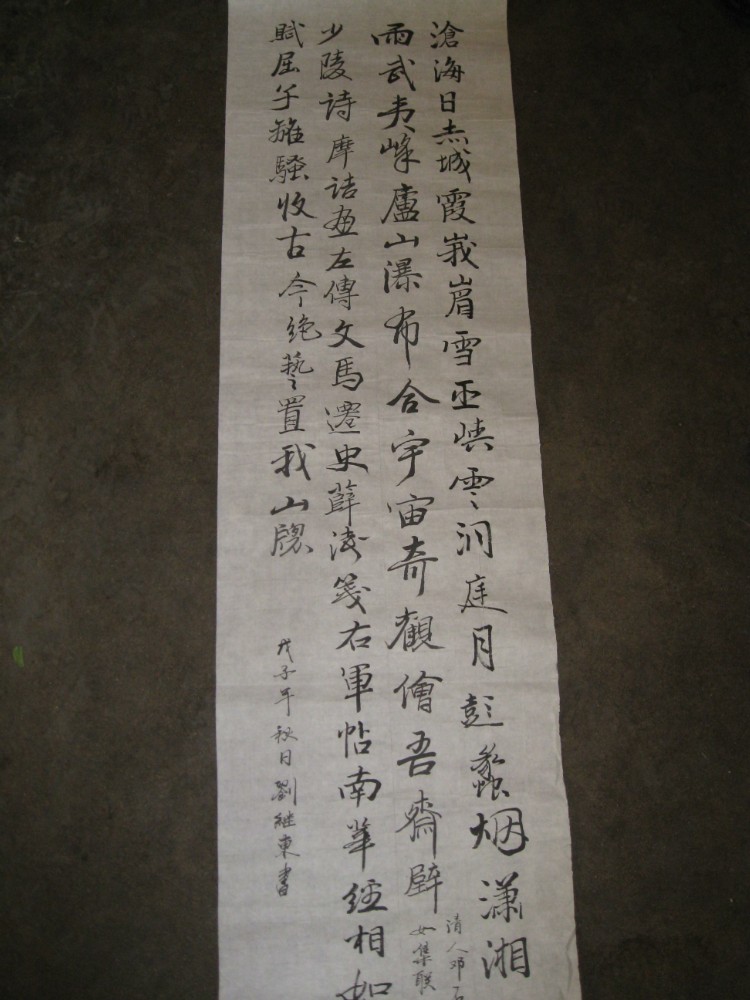 滄海日赤城霞峩嵋雪巫峽雲洞庭月彭蠡烟瀟湘
雨武夷峰廬山瀑布合宇宙奇觀繪吾齋壁
清人邓石
如集联
少陵詩摩詰画左傳文馬遷史薛濤箋右軍帖南華經相如
賦屈子離騷收古今绝藝置我山牕
戊子年秋日劉继東書